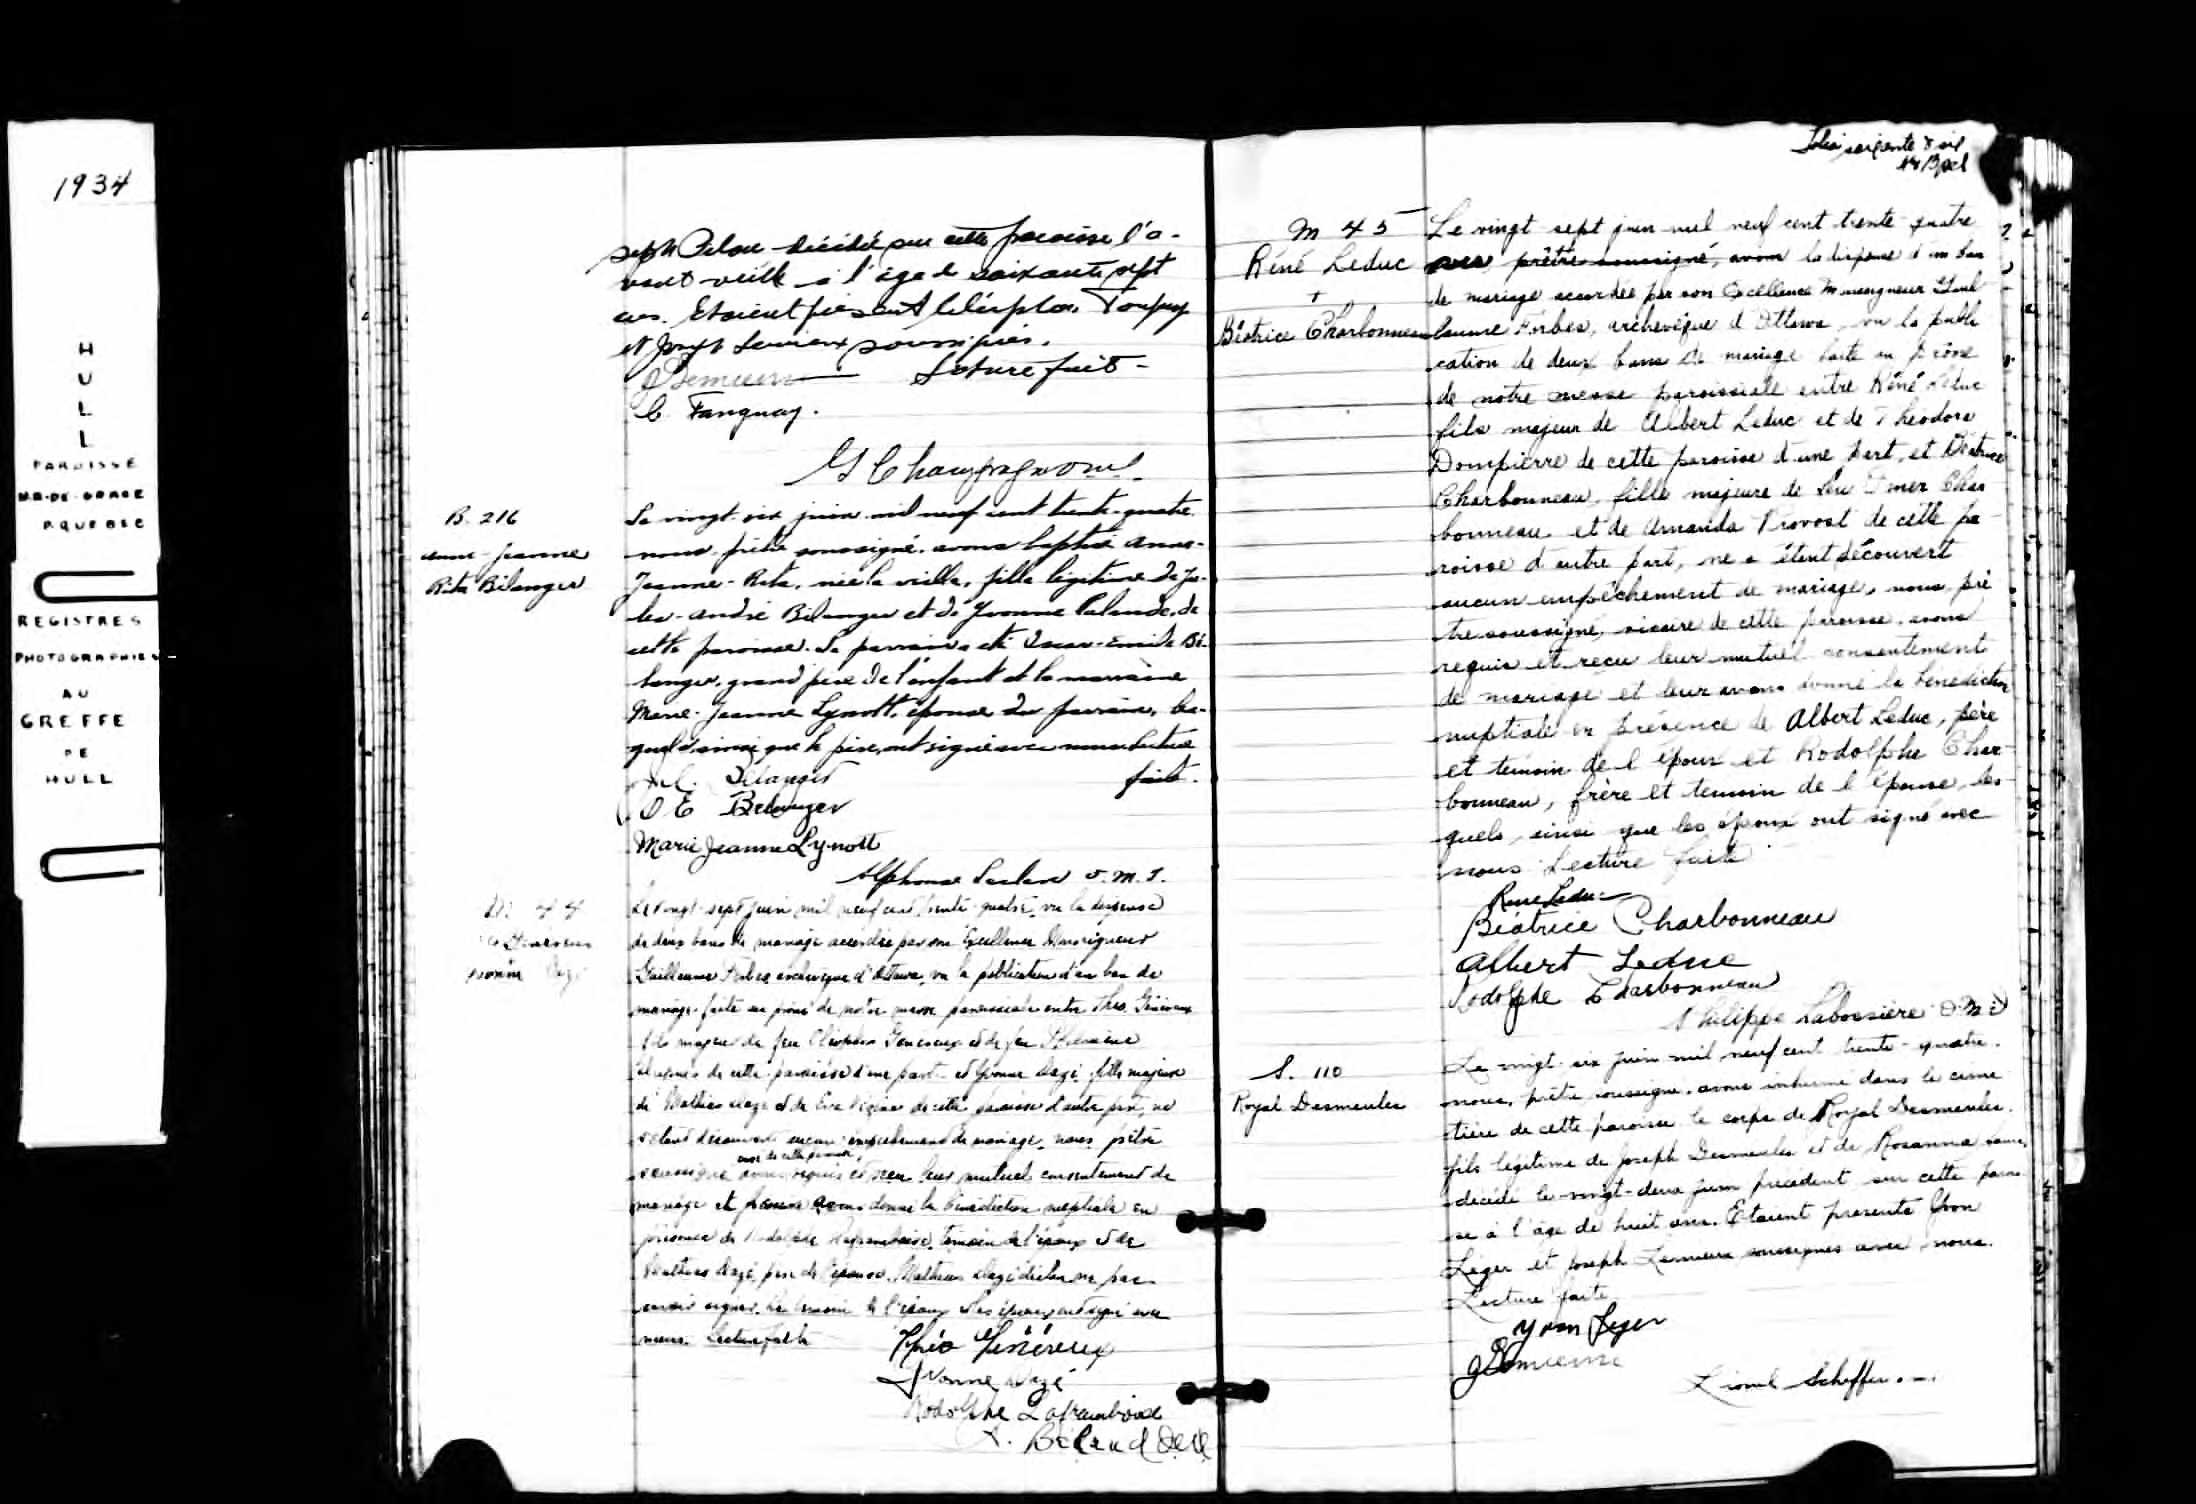 1934
HULL
PAROISSE
N.D-DE-GRACE
P.QUEBEC
REGISTRES
PHOTOGRAPHIES
AU
GREFFE
DE
HULL
décédé sur cette paroisse l'a-
vant veille à l'age de soixante sept
ans. Etaient présent
et Joseph Lemieux soussignés.
JLemieux Lecture faite
C. Tanguay.
B. 216
Anne-Jeanne
Rita Bélanger
Le vingt-six juin mil neuf cent trente-quatre
nous prêtre soussigné, avons baptisé Anne-
Jeanne-Rita, née la veille, fille légitime de Ju-
les-André Bélanger et de Yvonne Lalande, de
cette paroisse. Le parrain a été Oscar-Emile Bé-
langer, grand'père de l'enfant et la marraine
Marie-Jeanne Lynott, épouse du parrain, les-
quels ainsi que le père, ont signé avec nous. Lecture
faite.
Bélanger
O E Belanger
Marie Jeanne Lynott
Alphonse Leclerc O.M.I.
M 44
Le vingt-sept juin mil neuf cent trente-quatre, vu la dispense
de deux bans de mariage accordée par son Excellence Monseigneur
Guillaume Forbes archevêque d'Ottawa, vu la publication d'un ban de
mariage faite au prône de notre messe paroissiale entre Théo Généreux
fils majeur de feu Cléophas Généreux et de feu Philomène
de cette paroisse d'une part et Yvonne Dagé, fille majeure
de Mathias Dagé et de Eva de cette paroisse d'autre part, ne
s'étant découvert aucun empêchement de mariage, nous prêtre
curé de cette paroisse
soussigné avons requis et reçu leur mutuel consentement de
mariage et avons donné la bénédiction nuptiale en
présence de Rodolphe Laframboise, témoin de l'époux et de
Mathias Dagé, père de l'épouse. Mathias Dagé déclare ne pas
savoir signer. Le témoin de l'époux et les époux ont signé avec
nous. Lecture faite
Théo Généreux
Yvonne Dagé
Rodolphe Laframboise
M 45
Réné Leduc
+
Béatrice Charbonneau
Le vingt sept juin mil neuf cent trente-quatre
nous, prêtre soussigné, avons la dispense d'un ban
de mariage accordée par son Excellence Monseigneur Guil-
laume Forbes, archevêque d'Ottawa, vu la publi
cation de deux bans de mariage faite au prône
de notre messe paroissiale entre Réné Leduc
fils majeur de Albert Leduc et de Théodora
Dompierre de cette paroisse d'une part, et Béatrice
Charbonneau, fille majeure de feu Omer Char
bonneau et de Amanda Provost de cette pa-
roisse d'autre part, ne s'étant découvert
aucun empêchement de mariage, nous, prê
tre soussigné, vicaire de cette paroisse, avons
requis et reçu leur mutuel consentement
de mariage et leur avons donné la bénédiction
nuptiale en présence de Albert Leduc, père
et témoin de l'époux et Rodolphe Char-
bonneau, frère et témoin de l'épouse, les-
quels, ainsi que les époux ont signé avec
nous. Lecture faite
René Leduc
Béatrice Charbonneau
Albert Leduc
Rodolphe Charbonneau
Philippe Laboissière O.M.I
S. 110
Royal Desmeules
Le vingt-six juin mil neuf cent trente-quatre.
nous, prêtre soussigné, avons inhumé dans le cime
tière de cette paroisse le corps de Royal Desmeules.
fils légitime de Joseph Desmeules et de Rosanna
décédé le vingt-deux juin précédent sur cette parois
se à l'âge de huit ans. Etaient présents Yvon
Léger et Joseph Lemieux soussignés avec nous.
Lecture faite
Yvon Léger
JLemieux
Lionel Scheffer o.m.i.